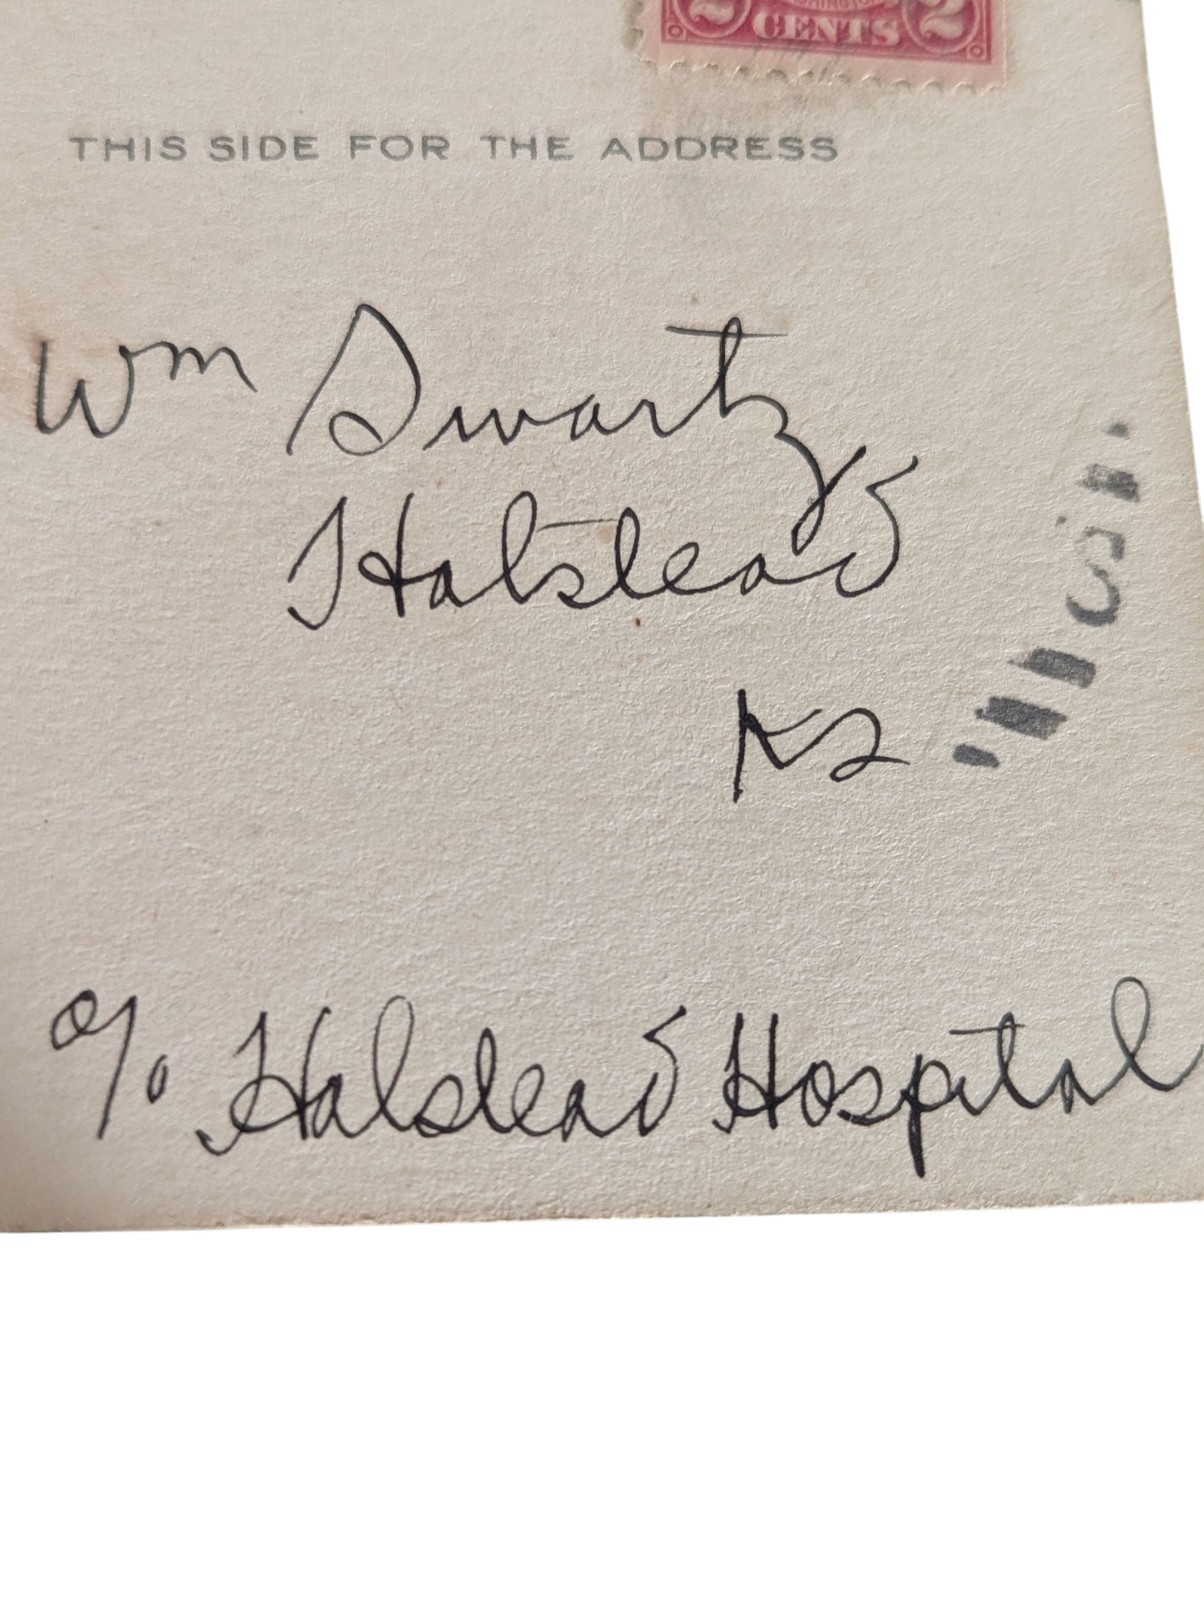 2 CENTS 2
THIS SIDE FOR THE ADDRESS
Wm Swartz
Halstead
Ks
c/o Halstead Hospital